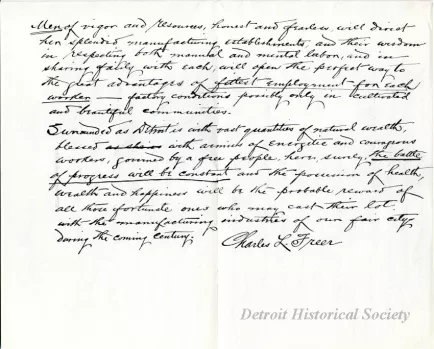 Men of vigor and resources, honest and fearless, will direct
her splendid manufacturing establishments, and their wisdom
in respecting both manual and mental labor, and in
sharing fairly with each, will open the perfect way to
the great advantages of fittest employment for each
worker — factory conditions possible only in cultivated
and beautiful communities.
Surrounded as Detroit is with vast quantities of natural wealth,
blessed with armies of energetic and courageous
workers, governed by a free people, here, surely, the battle
of progress will be constant and the possession of health,
wealth and happiness will be the probable reward of
all those fortunate ones who may cast their lot
with the manufacturing industries of our fair city
during the coming century.
Charles L. Freer
Detroit Historical Society